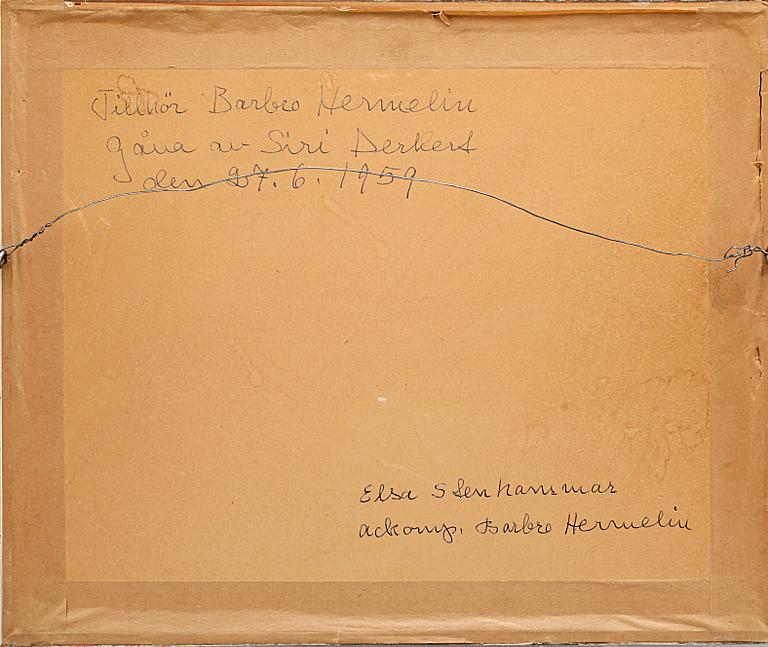 Tillhör Barbro Hermelin
gåva av Siri Derkert
den 27.6.1959
Elsa Stenhammar
ackomp. Barbro Hermelin